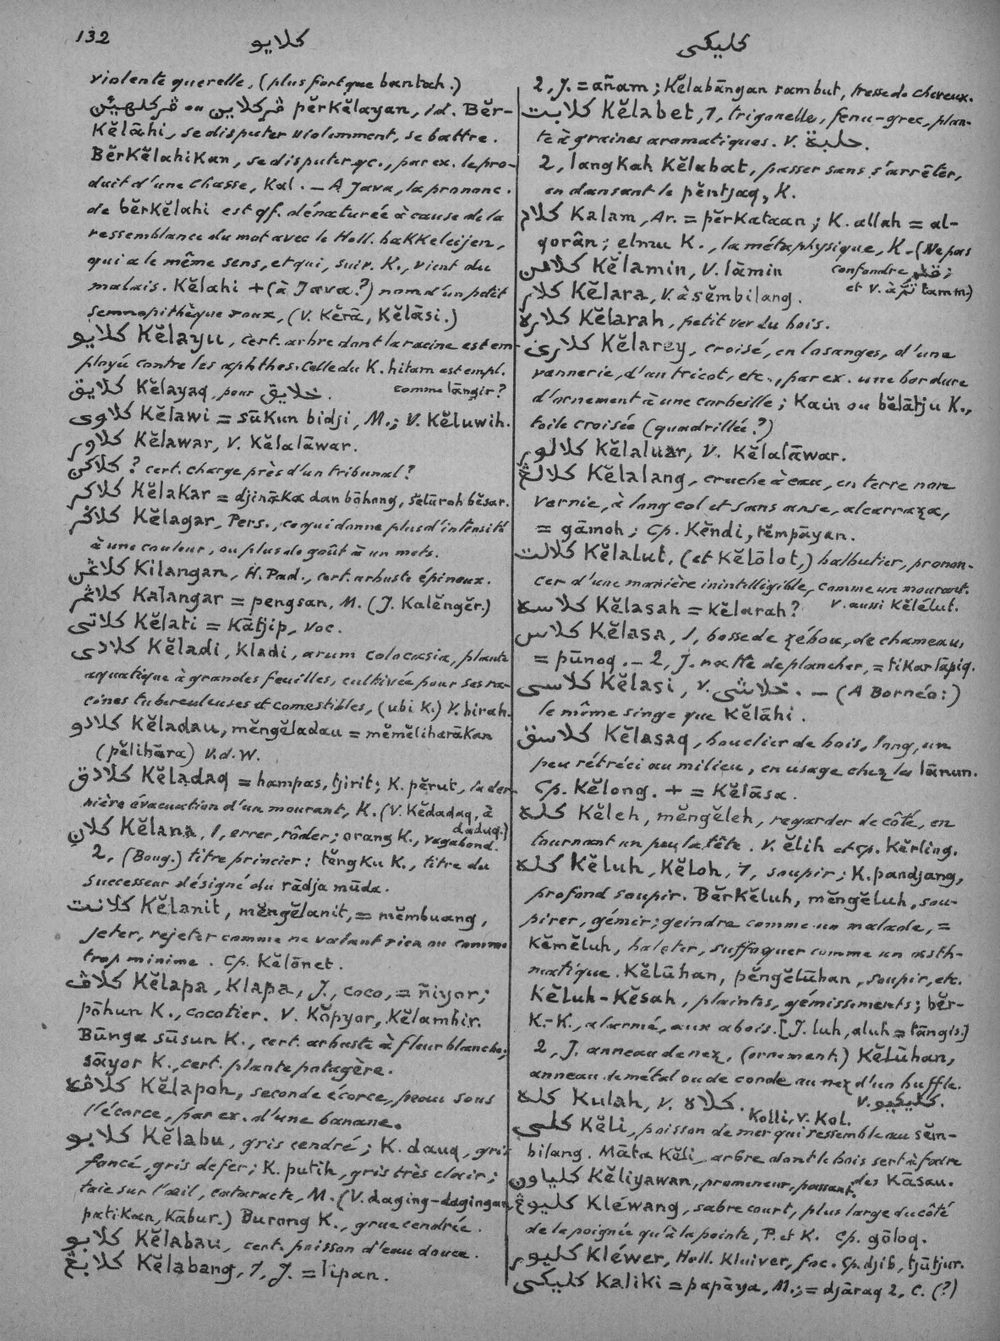 132
كلايو
كليكي
violente querelle, (plus fort que bantah.)
ڤركلاين ou ڤركلهين pĕrKĕlayan, id. Bĕr-
Kĕlāhi, se disputer violemment, se battre.
BĕrKĕlahiKan, se disputer qc., par ex. le pro-
duit d'une chasse, Kal. — A Java, la prononc.
de bĕrKĕlahi est qf. dénaturée à cause de la
ressemblance du mot avec le Holl. bakkeleijen,
qui a le même sens, et qui, suiv. K., vient du
malais. Kĕlahi + (à Java?) nom d'un petit
semnopithèque roux, (V. Kĕrā, Kĕlāsi.)
كلايو Kĕlayu, cert. arbre dont la racine est em-
ployée contre les aphthes. Celle du K. hitam est empl.
كلايق Kĕlayaq, pour خلايق. comme lāngir?
كلاوى Kĕlawi = sūKun bidji, M.; V. Kĕluwih.
كلاور Kĕlawar, V. Kĕlalāwar.
كلاكن ? cert. charge près d'un tribunal?
كلاكر KĕlaKar = djināKa dan bōhong, sĕlūroh bĕsar.
كلاݢر Kĕlagar, Pers., ce qui donne plus d'intensité
à une couleur, ou plus de goût à un mets.
كلاڠن Kilangan, H. Pad., cert. arbuste épineux.
كلاڠر Kalangar = pengsan, M. (J. Kalĕngĕr.)
كلاتى Kĕlati = Kātjip, voc.
كلادى Kĕladi, Kladi, arum colocasia, plante
aquatique à grandes feuilles, cultivée pour ses ra-
cines tuberculeuses et comestibles, (ubi K.) V. birah.
كلادو Kĕladau, mĕngĕladau = mĕmĕliharāKan
(pĕlihāra) V.d.W.
كلادق Kĕladaq = hampas, tjirit; K. pĕrut, la der-
nière évacuation d'un mourant, K. (V. Kĕdadaq, à
daduq.)
كلان Kĕlana, 1, errer, rôder; orang K., vagabond.
2, (Boug.) titre princier: tĕngKu K., titre du
successeur désigné du rādja mūda.
كلانت Kĕlanit, mĕngĕlanit, = mĕmbuang,
jeter, rejeter comme ne valant rien ou comme
trop minime. Cp. Kĕlōnet.
كلاڤ Kĕlapa, Klapa, J., coco, = ñiyor;
pōhun K., cocotier. V. Kŏpyor, Kĕlambir.
Būnga sūsun K., cert. arbuste à fleur blanche;
sāyor K., cert. plante potagère.
كلاڤه Kĕlapoh, seconde écorce, peau sous
l'écorce, par ex. d'une banane.
كلابو Kĕlabu, gris cendré; K. dauq, gris
foncé, gris de fer; K. putih, gris très clair;
taie sur l'œil, cataracte, M. (V. daging-dagingan,
patiKan, Kābur.) Burong K., grue cendrée.
كلابو Kĕlabau, cert. poisson d'eau douce.
كلابڠ Kĕlabang, 1, J. = lipan.
2, J. = añam; Kĕlabāngan rambut, tresse de cheveux.
كلابت Kĕlabet, 1, trigonelle, fenu-grec, plan-
te à graines aromatiques. V. حلبة.
2, langKah Kĕlabat, passer sans s'arrêter,
en dansant le pĕntjaq, K.
كلام Kalam, Ar. = pĕrKataan; K. allah = al-
qorân; elmu K., la métaphysique, K. (Ne pas
confondre قلم;
كلامن Kĕlamin, V. lāmin
et V. à تم tamm)
كلار Kĕlara, V. à sĕmbilang.
كلاره Kĕlarah, petit ver du bois.
كلارى Kĕlarey, croisé, en losanges, d'une
vannerie, d'un tricot, etc., par ex. une bordure
d'ornement à une corbeille; Kain ou bĕlātju K.,
toile croisée (quadrillée?)
كلالور Kĕlaluar, V. Kĕlalāwar.
كلالڠ Kĕlalang, cruche à eau, en terre non
vernie, à long col et sans anse, alcarraza,
= gāmoh; Cp. Kĕndi, tĕmpāyan.
كلالت Kĕlalut, (et Kĕlōlot,) balbutier, pronon-
cer d'une manière inintelligible, comme un mourant.
V. aussi Kĕlélut.
كلاسه Kĕlasah = Kĕlarah?
كلاس Kĕlasa, 1, bosse de zébou, de chameau,
= pūnoq. — 2, J. natte de plancher, = tiKar lāpiq.
كلاسى Kĕlasi, V. خلاشى. — (A Bornéo:)
le même singe que Kĕlāhi.
كلاسق Kĕlasaq, bouclier de bois, long, un
peu rétréci au milieu, en usage chez les lānun.
Cp. Kĕlong. + = Kĕlāsa.
كله Kĕleh, mĕngĕleh, regarder de côté, en
tournant un peu la tête. V. ĕlih et Cp. Kĕrling.
كله Kĕluh, Kĕloh, 1, soupir; K. pandjang,
profond soupir. BĕrKĕluh, mĕngĕluh, sou-
pirer, gémir; geindre comme un malade, =
Kĕmĕluh, haleter, suffoquer comme un asth-
matique. Kĕlūhan, pĕngĕlūhan, soupir, etc.
Kĕluh-Kĕsah, plaintes, gémissements; bĕr-
K.-K., alarmé, aux abois. [J. luh, aluh = tāngis.]
2, J. anneau de nez, (ornement.) Kĕlūhan,
anneau de métal ou de corde au nez d'un buffle.
كله Kulah, V. كلاه. V. كليكيو.
Kolli, V. Kol.
كلى Kĕli, poisson de mer qui ressemble au sĕm-
bilang. Māta Kĕli, arbre dont le bois sert à faire
des Kāsau.
كلياون Kĕliyawan, promeneur, passant.
كليوڠ Kléwang, sabre court, plus large du côté
de la poignée qu'à la pointe, P. et K. Cp. gōloq.
كليور Kléwer, Holl. Kluiver, foc. Cp. djib, tjūtjur.
كليكى Kaliki = papāya, M.; = djāraq 2, C. (?)